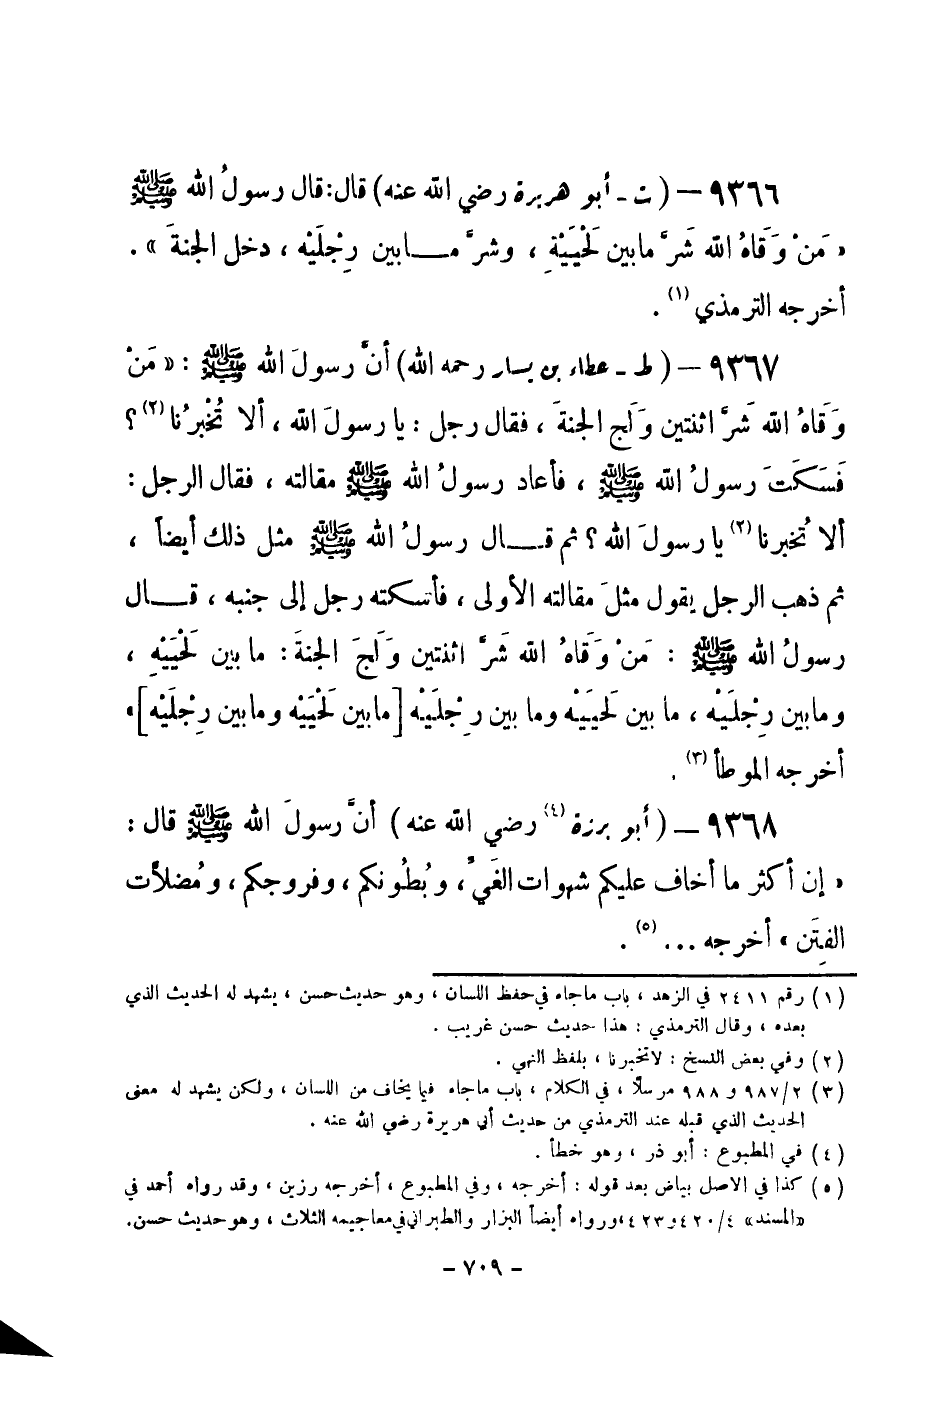 ٩٣٦٦ — (ت - أبو هريرة رضي الله عنه) قال: قال رسولُ الله ﷺ
« مَنْ وَقَاهُ الله شَرَّ مابين لَحْيَيْهِ ، وشرَّ مـــابين رِجْلَيْه ، دخل الجنةَ » .
أخرجه الترمذي (١) .
٩٣٦٧ — ( ط - عطاء بن يسار رحمه الله) أنَّ رسولَ الله ﷺ : « مَنْ
وَقَاهُ الله شَرَّ اثنتين وَلَج الجنةَ ، فقال رجل : يا رسولَ الله ، ألا تُخْبِرُنا (٢) ؟
فَسَكَتَ رسولُ الله ﷺ ، فأعاد رسولُ الله ﷺ مقالته ، فقال الرجل :
ألا تُخبرنا (٢) يا رسولَ الله ؟ ثم قـــال رسولُ الله ﷺ مثل ذلك أيضاً ،
ثم ذهب الرجل يقول مثلَ مقالته الأولى ، فأسكته رجل إلى جنبه ، قـــال
رسولُ الله ﷺ : مَنْ وَقَاهُ الله شَرَّ اثنتين وَلَجَ الجنةَ : ما بين لَحْيَيْهِ ،
وما بين رِجْلَيْه ، ما بين لَحييَيْه وما بين رِجْلَيْه [ما بين لَحْيَيْه وما بين رِجْلَيْه] »
أخرجه الموطأ (٣) .
٩٣٦٨ — ( أبو برزة (٤) رضي الله عنه ) أنَّ رسولَ الله ﷺ قال :
« إن أكثر ما أخاف عليكم شهوات الغَيِّ ، وبُطُونكم ، وفروجكم ، ومُضلاَّت
الفِتَن » أخرجه ... (٥) .
(١) رقم ٢٤١١ في الزهد ، باب ماجاء في حفظ اللسان ، وهو حديث حسن ، يشهد له الحديث الذي
بعده ، وقال الترمذي : هذا حديث حسن غريب .
(٢) وفي بعض النسخ : لاتخبرنا ، بلفظ النهي .
(٣) ٩٨٧/٢ و ٩٨٨ مرسلاً ، في الكلام ، باب ماجاء فيما يخاف من اللسان ، ولكن يشهد له معنى
الحديث الذي قبله عند الترمذي من حديث أبي هريرة رضي الله عنه .
(٤) في المطبوع : أبو ذر ، وهو خطأ .
(٥) كذا في الاصل بياض بعد قوله : أخرجه ، وفي المطبوع ، أخرجه رزين ، وقد رواه أحمد في
«المسند» ٤٢٠/٤ و٤٢٣، ورواه أيضاً البزار والطبراني في معاجيمه الثلاث ، وهو حديث حسن.
- ٧٠٩ -